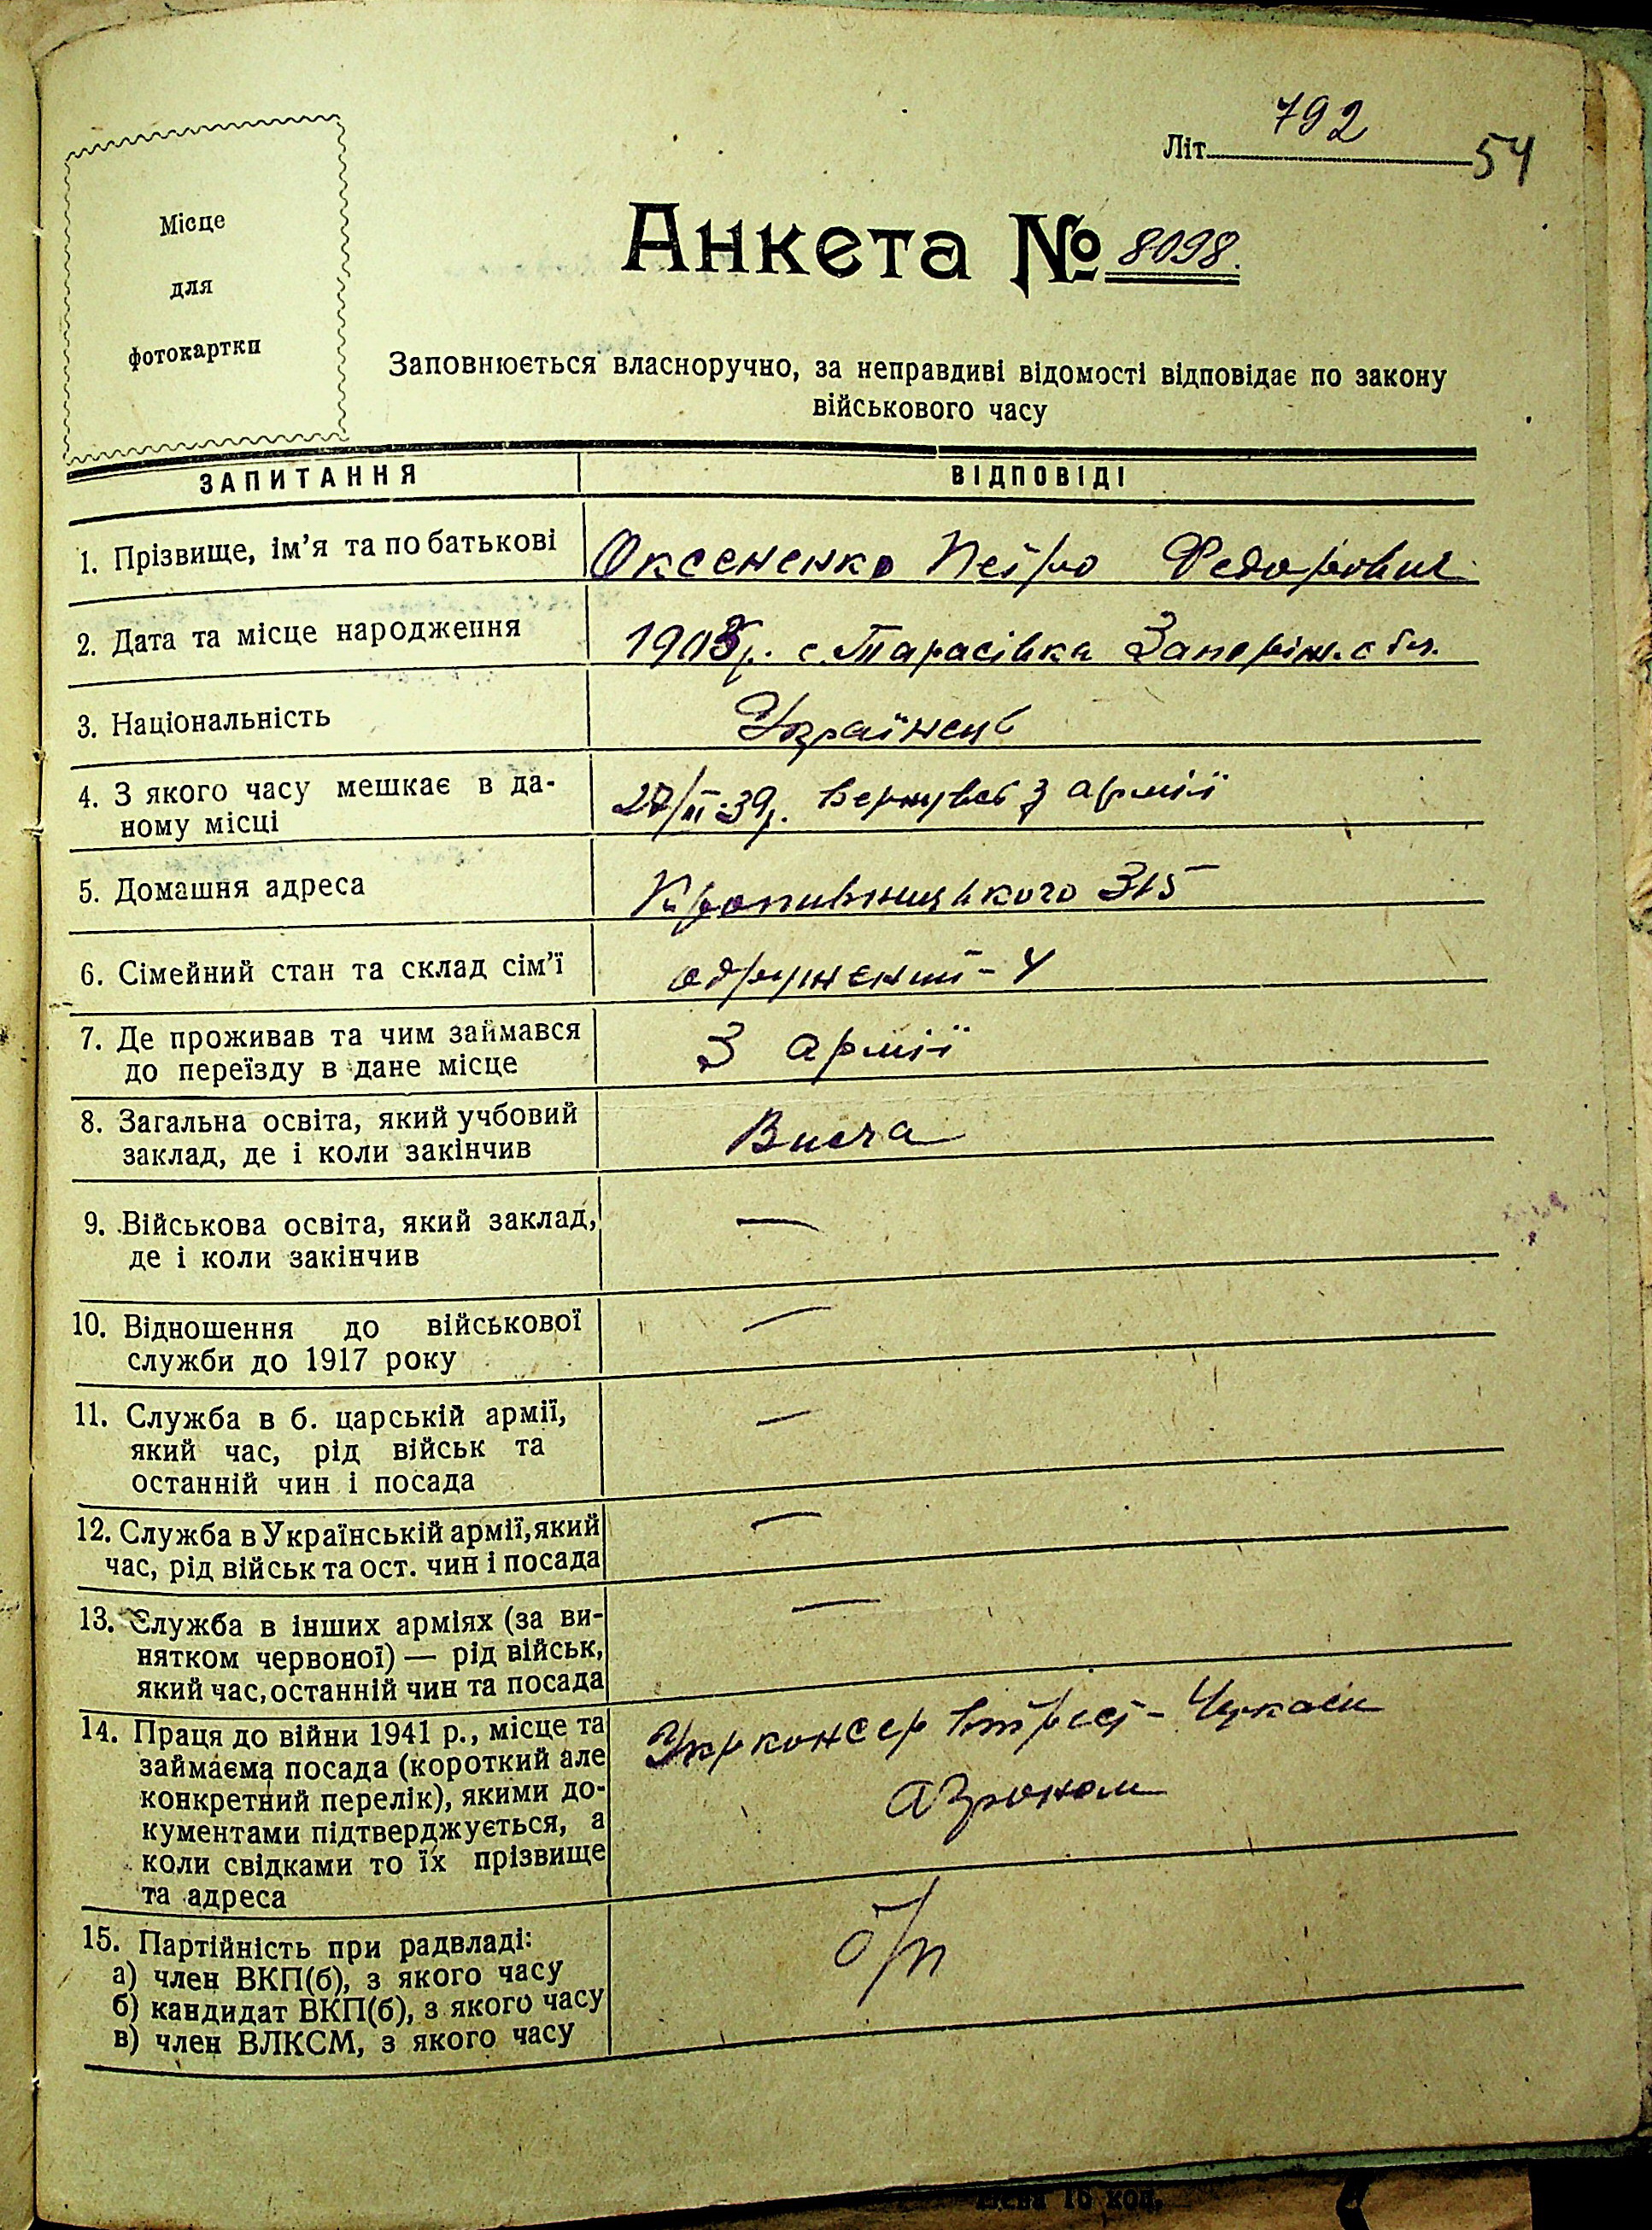 792
Літ. 54
Місце
для
фотокартки
Анкета № 8098.
Заповнюється власноручно, за неправдиві відомості відповідає по закону
військового часу
ЗАПИТАННЯ ВІДПОВІДІ
1. Прізвище, ім'я та по батькові Оксененко Петро Федорович
2. Дата та місце народження 1905р. с. Тарасівка Запоріж. обл.
3. Національність Українець
4. З якого часу мешкає в да- 27/II-39р. Вернувсь з армії
ному місці
5. Домашня адреса Кропивницького 315
6. Сімейний стан та склад сім'ї одружений - 4
7. Де проживав та чим займався З армії
до переїзду в дане місце
8. Загальна освіта, який учбовий Висча
заклад, де і коли закінчив
9. Військова освіта, який заклад, —
де і коли закінчив
10. Відношення до військової —
служби до 1917 року
11. Служба в б. царській армії, —
який час, рід військ та
останній чин і посада
12. Служба в Українській армії, який —
час, рід військ та ост. чин і посада
13. Служба в інших арміях (за ви- —
нятком червоної) — рід військ,
який час, останній чин та посада
14. Праця до війни 1941 р., місце та Укрконсервтрест - Черкаси
займаєма посада (короткий але
конкретний перелік), якими до- агроном
кументами підтверджується, а
коли свідками то їх прізвище
та адреса
15. Партійність при радвладі: б/п
а) член ВКП(б), з якого часу
б) кандидат ВКП(б), з якого часу
в) член ВЛКСМ, з якого часу